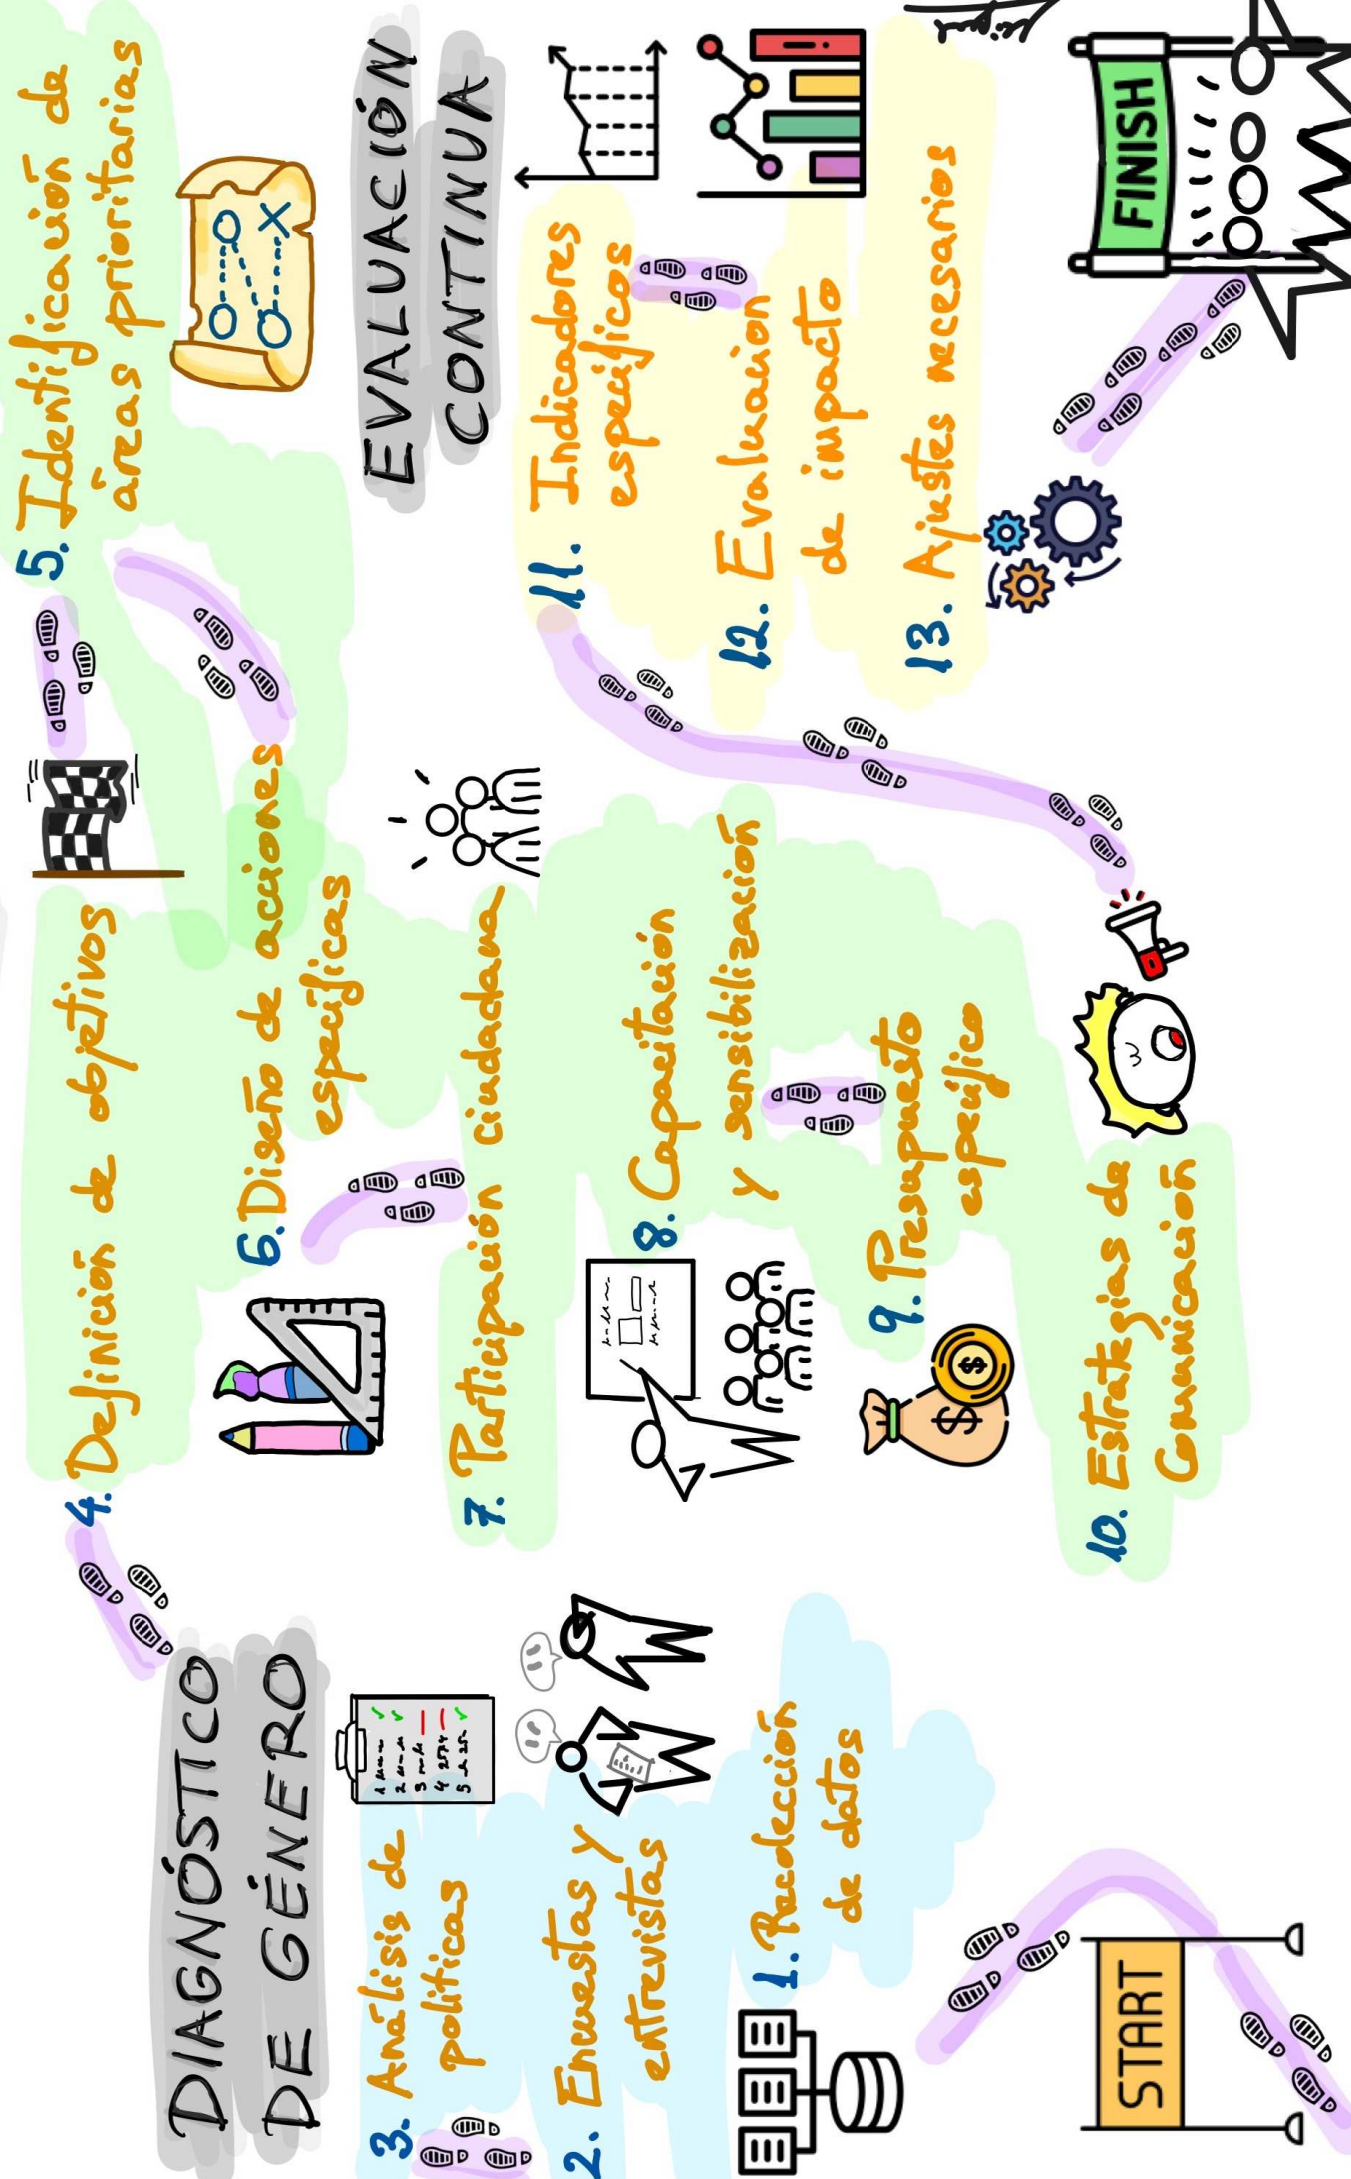 DIAGNÓSTICO
DE GÉNERO
START
1. Recolección
de datos
2. Encuestas y
entrevistas
3. Análisis de
políticas
4. Definición de objetivos
5. Identificación de
áreas prioritarias
6. Diseño de acciones
específicas
7. Participación ciudadana
8. Capacitación
y sensibilización
9. Presupuesto
específico
$
$
10. Estrategias de
Comunicación
EVALUACIÓN
CONTINUA
11. Indicadores
específicos
12. Evaluación
de impacto
13. Ajustes necesarios
FINISH